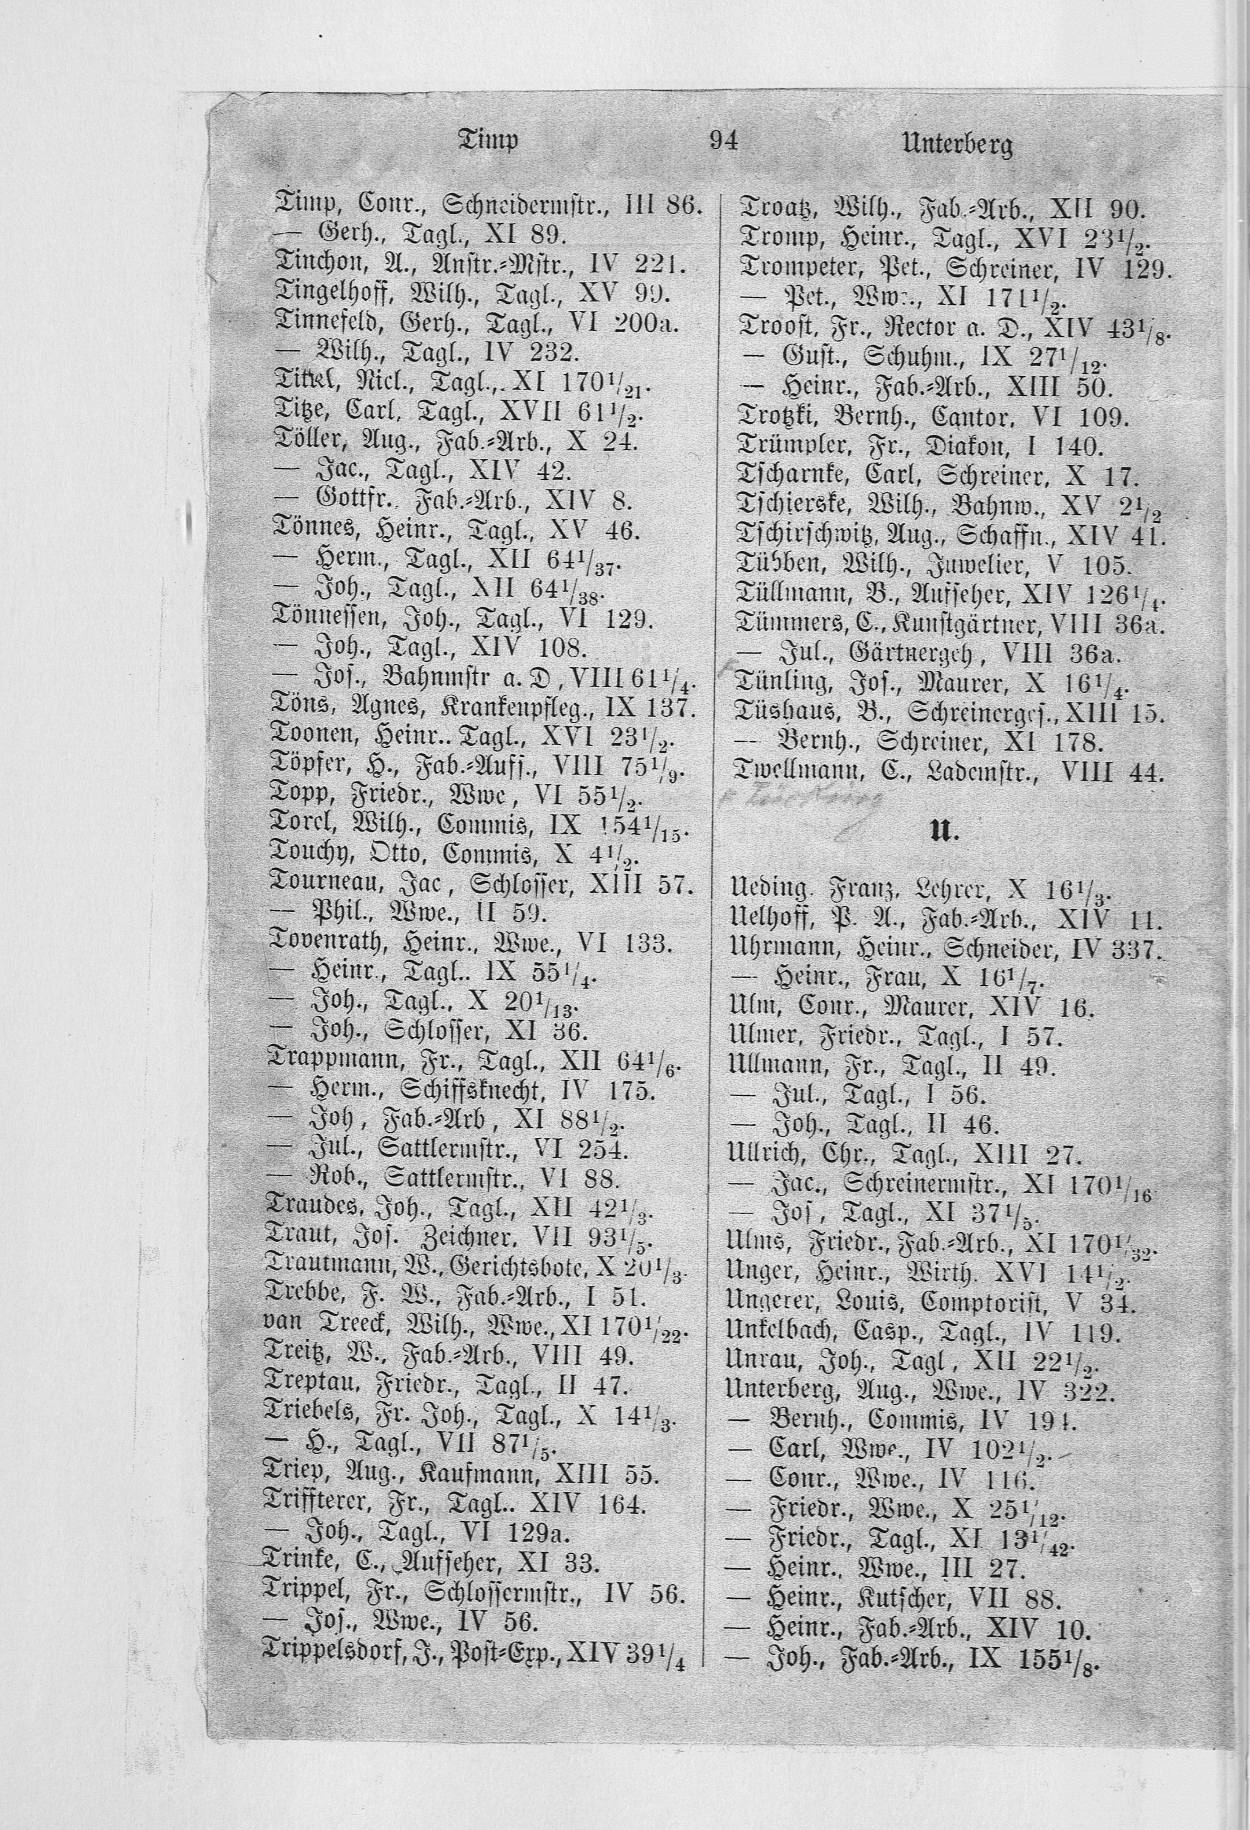 Timp 94 Unterberg
Timp, Conr., Schneidermstr., III 86.
— Gerh., Tagl., XI 89.
Tinchon, A., Anstr.-Mstr., IV 221.
Tingelhoff, Wilh., Tagl., XV 99.
Tinnefeld, Gerh., Tagl., VI 200a.
— Wilh., Tagl., IV 232.
Tittel, Nicl., Tagl., XI 170 1/21.
Titze, Carl, Tagl., XVII 61 1/2.
Töller, Aug., Fab.-Arb., X 24.
— Jac., Tagl., XIV 42.
— Gottfr., Fab.-Arb., XIV 8.
Tönnes, Heinr., Tagl., XV 46.
— Herm., Tagl., XII 64 1/37.
— Joh., Tagl., XII 64 1/38.
Tönnessen, Joh., Tagl., VI 129.
— Joh., Tagl., XIV 108.
— Jos., Bahnmstr a. D, VIII 61 1/4.
Töns, Agnes, Krankenpfleg., IX 137.
Toonen, Heinr., Tagl., XVI 23 1/2.
Töpfer, H., Fab.-Auff., VIII 75 1/9.
Topp, Friedr., Wwe, VI 55 1/2.
Torel, Wilh., Commis, IX 154 1/15.
Touchy, Otto, Commis, X 4 1/2.
Tourneau, Jac, Schlosser, XIII 57.
— Phil., Wwe., II 59.
Tovenrath, Heinr., Wwe., VI 133.
— Heinr., Tagl.. IX 55 1/4.
— Joh., Tagl., X 20 1/13.
— Joh., Schlosser, XI 36.
Trappmann, Fr., Tagl., XII 64 1/6.
— Herm., Schiffsknecht, IV 175.
— Joh, Fab.-Arb, XI 88 1/2.
— Jul., Sattlermstr., VI 254.
— Rob., Sattlermstr., VI 88.
Traudes, Joh., Tagl., XII 42 1/3.
Traut, Jos. Zeichner, VII 93 1/5.
Trautmann, W., Gerichtsbote, X 20 1/3.
Trebbe, F. W., Fab.-Arb., I 51.
van Treeck, Wilh., Wwe., XI 170 1/22.
Treitz, W., Fab.-Arb., VIII 49.
Treptau, Friedr., Tagl., II 47.
Triebels, Fr. Joh., Tagl., X 14 1/3.
— H., Tagl., VII 87 1/5.
Triep, Aug., Kaufmann, XIII 55.
Triffterer, Fr., Tagl.. XIV 164.
— Joh., Tagl., VI 129a.
Trinke, C., Aufseher, XI 33.
Trippel, Fr., Schlossermstr., IV 56.
— Jos., Wwe., IV 56.
Trippelsdorf, J., Post-Exp., XIV 39 1/4
Troatz, Wilh., Fab.-Arb., XII 90.
Tromp, Heinr., Tagl., XVI 23 1/2.
Trompeter, Pet., Schreiner, IV 129.
— Pet., Wwe., XI 171 1/2.
Troost, Fr., Rector a. D., XIV 43 1/8.
— Gust., Schuhm., IX 27 1/12.
— Heinr., Fab.-Arb., XIII 50.
Trotzki, Bernh., Cantor, VI 109.
Trümpler, Fr., Diakon, I 140.
Tscharnke, Carl, Schreiner, X 17.
Tschierske, Wilh., Bahnw., XV 2 1/2
Tschirschwitz, Aug., Schaffn., XIV 41.
Tübben, Wilh., Juwelier, V 105.
Tüllmann, B., Aufseher, XIV 126 1/4.
Tümmers, C., Kunstgärtner, VIII 36a.
— Jul., Gärtnergeh, VIII 36a.
Tünling, Jos., Maurer, X 16 1/4.
Tüshaus, B., Schreinerges., XIII 15.
— Bernh., Schreiner, XI 178.
Twellmann, C., Lademstr., VIII 44.
U.
Ueding, Franz, Lehrer, X 16 1/3.
Uelhoff, P. A., Fab.-Arb., XIV 11.
Uhrmann, Heinr., Schneider, IV 337.
— Heinr., Frau, X 16 1/7.
Ulm, Conr., Maurer, XIV 16.
Ulmer, Friedr., Tagl., I 57.
Ullmann, Fr., Tagl., II 49.
— Jul., Tagl., I 56.
— Joh., Tagl., II 46.
Ullrich, Chr., Tagl., XIII 27.
— Jac., Schreinermstr., XI 170 1/16
— Jos, Tagl., XI 37 1/5.
Ulms, Friedr., Fab.-Arb., XI 170 1/32.
Unger, Heinr., Wirth. XVI 14 1/2.
Ungerer, Louis, Comptorist, V 34.
Unkelbach, Casp., Tagl., IV 119.
Unrau, Joh., Tagl, XII 22 1/2.
Unterberg, Aug., Wwe., IV 322.
— Bernh., Commis, IV 194.
— Carl, Wwe., IV 102 1/2.
— Conr., Wwe., IV 116.
— Friedr., Wwe., X 25 1/12.
— Friedr., Tagl., XI 13 1/42.
— Heinr., Wwe., III 27.
— Heinr., Kutscher, VII 88.
— Heinr., Fab.-Arb., XIV 10.
— Joh., Fab.-Arb., IX 155 1/8.